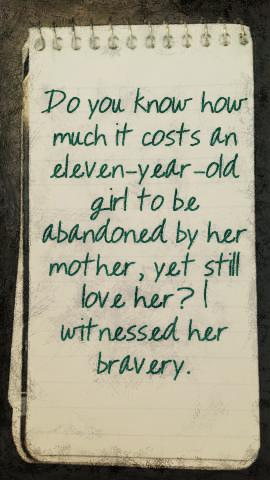 Do you know how
much it costs an
eleven-year-old
girl to be
abandoned by her
mother, yet still
love her? I
witnessed her
bravery.